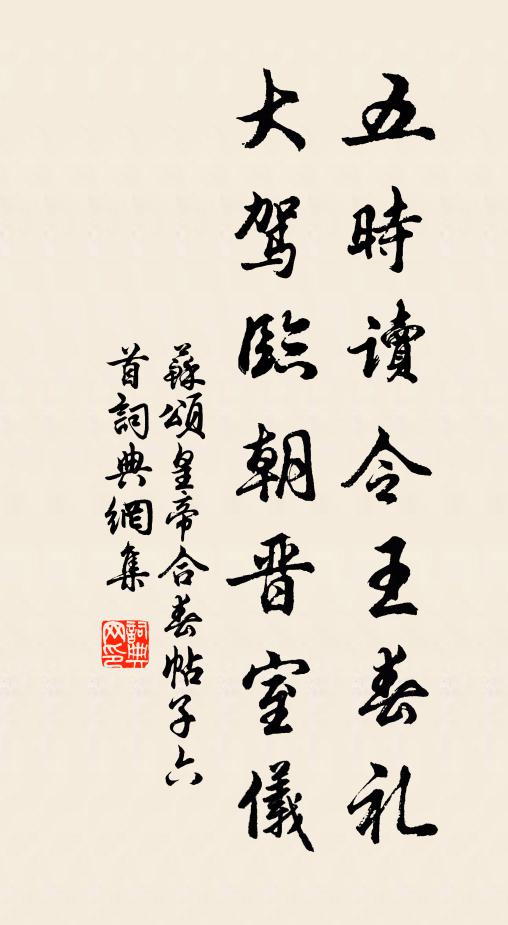 五時讀令王春礼
大駕臨朝晋室儀
蘇頌皇帝合春帖子六
首詞典網集
詞典网印